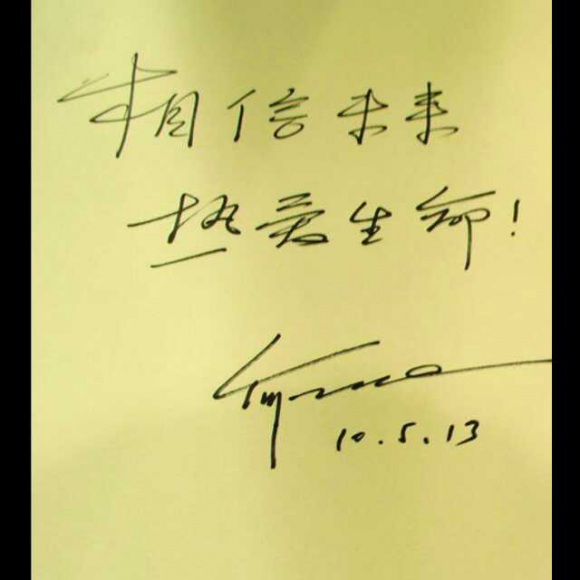 相信未来
热爱生命！
10.5.13